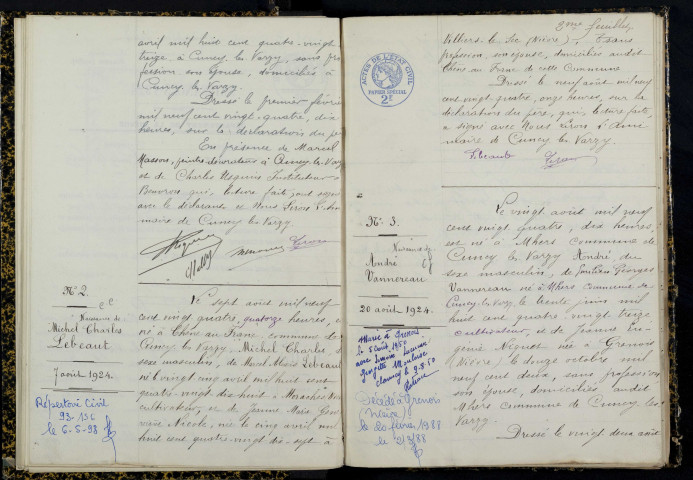 avril mil huit cent quatre-vingt
treize, à Cuncy les Varzy, sans pro
fession son épouse, domiciliés à
Cuncy les Varzy.
Dressé le premier février
mil neuf cent vingt-quatre, dix
heures, sur la déclaration du père
En présence de Marcel
peintre décorateur à Cuncy-les-Varzy
et de Charles Instituteur à
qui, lecture faite, ont signé
avec le déclarant et Nous
maire de Cuncy les Varzy
N° 2.
Naissance de
Michel Charles
Lebeaut
7 août 1924.
Répertoire Civil
93-156
le 6-5-93
Le sept août mil neuf
cent vingt quatre, quatorze heures,
né à Chêne au Franc, commune de
Cuncy les Varzy, Michel Charles, du
sexe masculin, de Marcel Lebeaut
né le vingt cinq avril mil huit cent
quatre-vingt dix-huit à
cultivateur, et de Jeanne Marie
Nicole, née le cinq avril mil
huit cent quatre-vingt dix-sept à
2me feuillet
ACTES DE L'ETAT CIVIL
PAPIER SPECIAL
2F
Villiers le Sec (Nièvre), sans
profession, son épouse, domiciliés audit
Chêne au Franc de cette Commune
Dressé le neuf août mil neuf
cent vingt quatre, onze heures, sur la
déclaration du père, qui, lecture faite,
a signé avec Nous
maire de Cuncy les Varzy
Lebeaut
N° 3.
Naissance de
André
Vannereau
20 août 1924.
Marié à Grenois
le 5 août 1950
avec Simone
Georgette
Clamecy le 9.8.50
Décédé à Grenois
(Nièvre)
le 20 février 1988
le 2/3/88
Le vingt août mil neuf
cent vingt quatre, dix heures,
est né à Mhers commune de
Cuncy les Varzy André du
sexe masculin, de Georges
Vannereau né à Mhers commune de
Cuncy les Varzy, le trente juin mil
huit cent quatre-vingt treize
cultivateur, et de Jeanne
née à Grenois
(Nièvre) le douze octobre mil
neuf cent deux, sans profession
son épouse, domiciliés audit
Mhers commune de Cuncy les
Varzy.
Dressé le vingt deux août